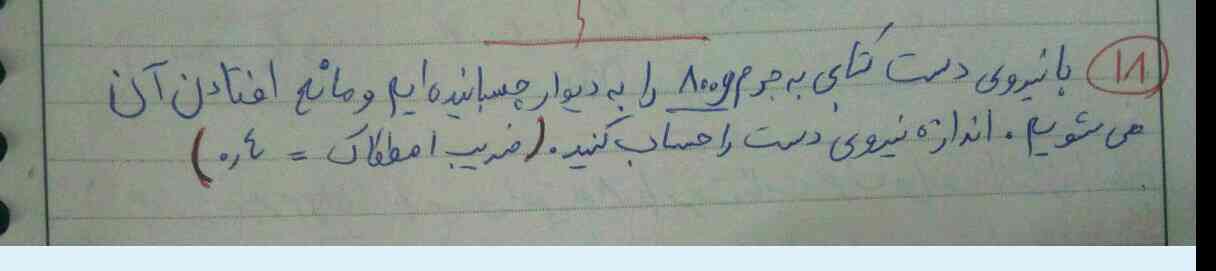 ۱۸ با نیروی دست کتابی به جرم ۸۰۰g را به دیوار چسبانیده‌ایم و مانع افتادن آن
می شویم. اندازه نیروی دست را حساب کنید. (ضریب اصطکاک = ۰٫۴)